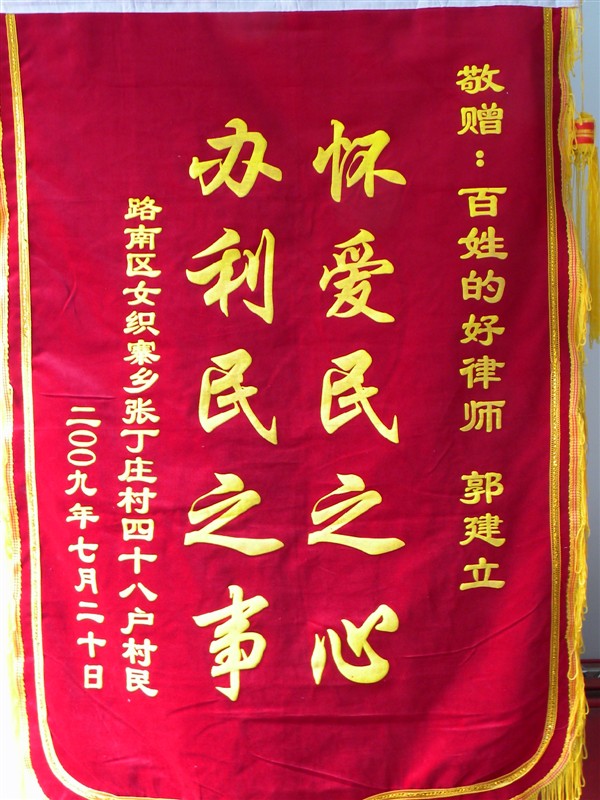 敬赠：百姓的好律师 郭建立
怀爱民之心
办利民之事
路南区女织寨乡张丁庄村四十八户村民
二〇〇九年七月二十日